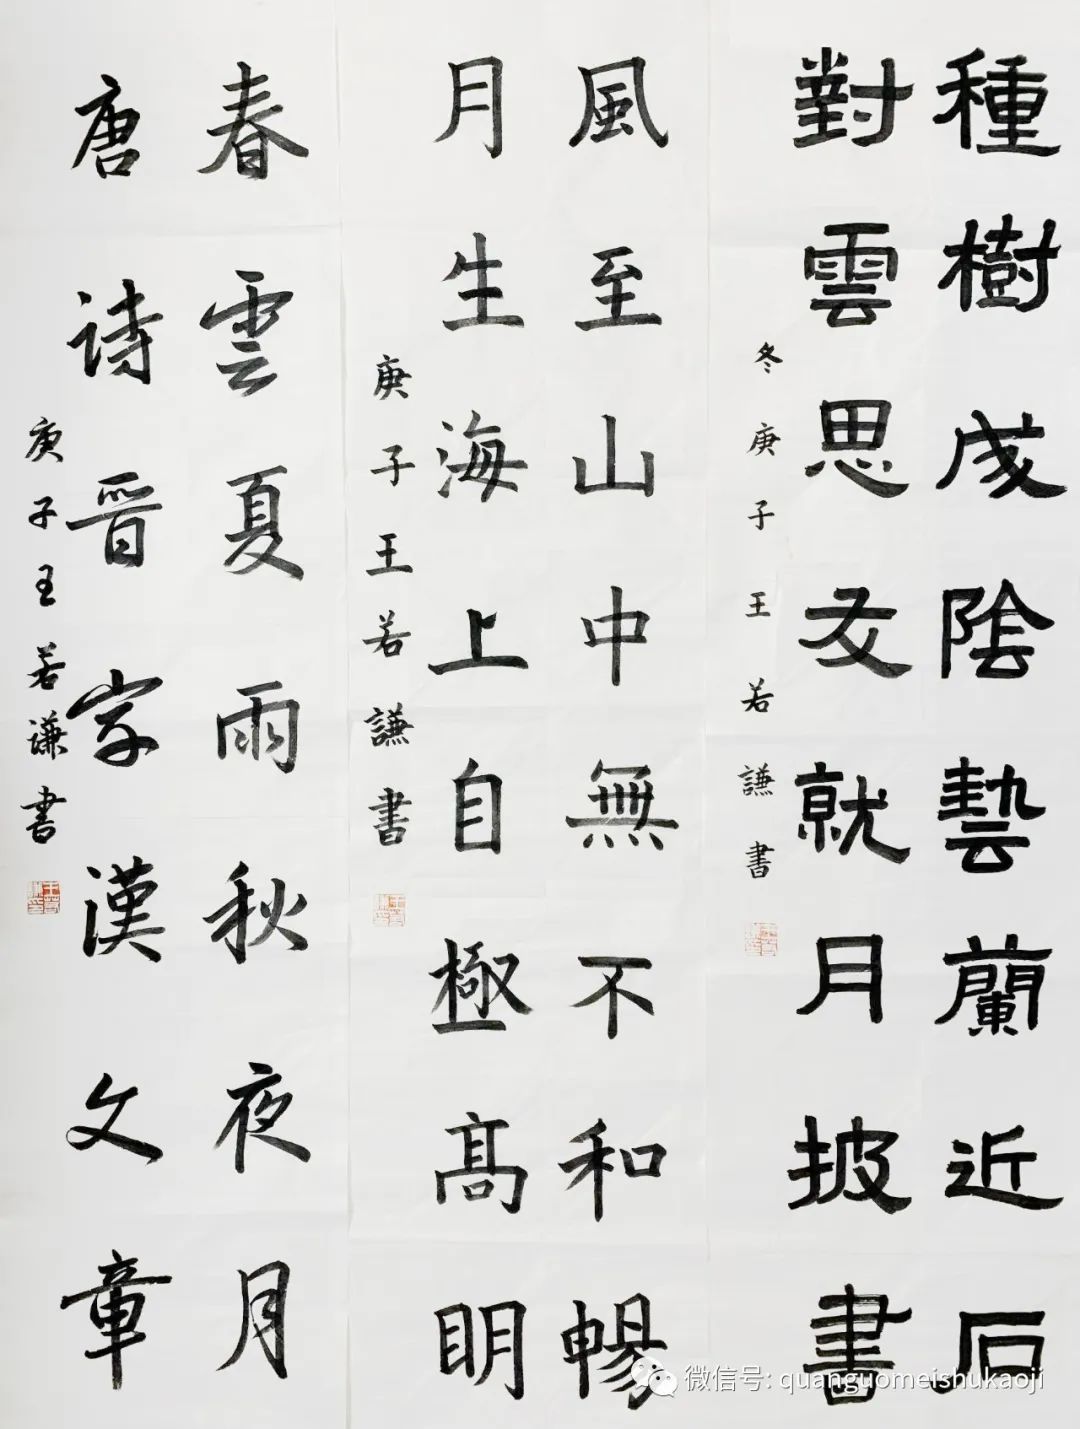 種樹成陰藝蘭近石
對雲思友就月披書
冬庚子王若謙書
風至山中無不和暢
月生海上自極高明
庚子王若謙書
春雲夏雨秋夜月
唐诗晋字漢文章
庚子王若谦書
微信号: quanguomeishukaoji